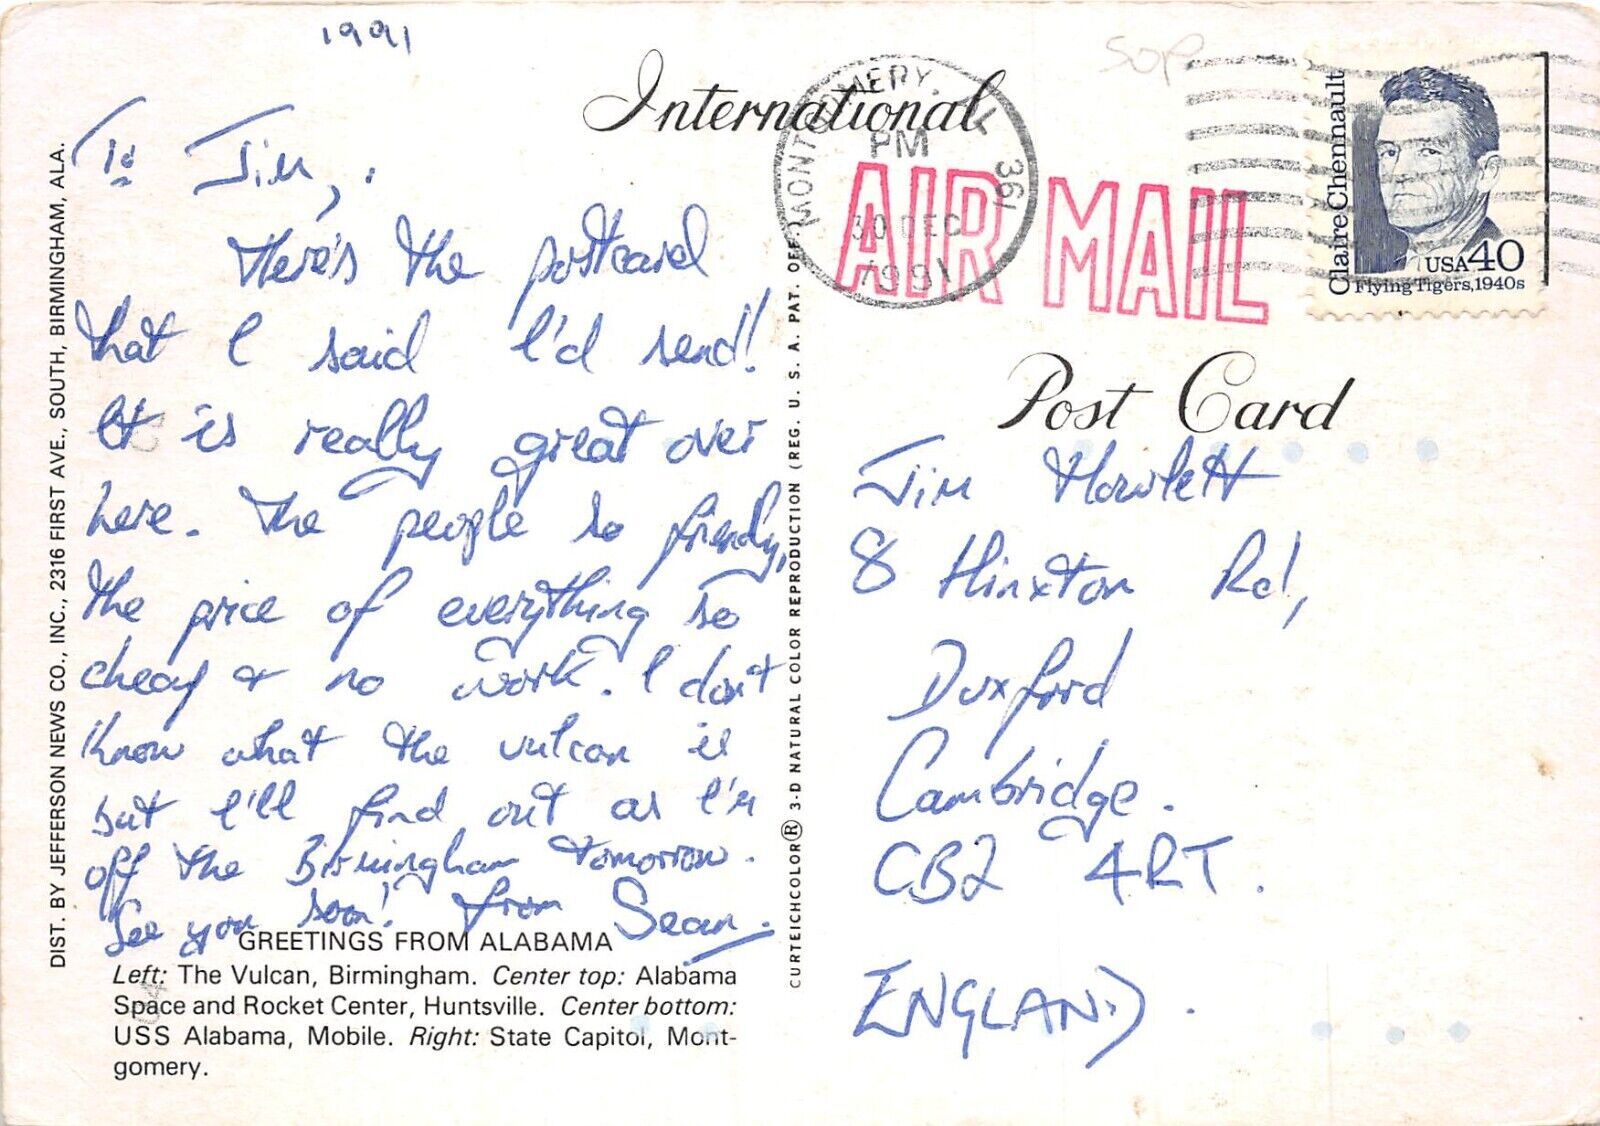 1991
50p
International
MONTGOMERY, AL 361
PM
30 DEC
1991
AIR MAIL
Claire Chennault
USA 40
Flying Tigers, 1940s
Post Card
To Jim,
Here's the postcard
that I said I'd send!
It is really great over
here. The people so friendly,
the price of everything so
cheap & no work. I don't
know what the vulcan is
but I'll find out as I'm
off the Birmingham tomorrow.
See you soon! from Sean.
GREETINGS FROM ALABAMA
Left: The Vulcan, Birmingham. Center top: Alabama
Space and Rocket Center, Huntsville. Center bottom:
USS Alabama, Mobile. Right: State Capitol, Mont-
gomery.
DIST. BY JEFFERSON NEWS CO., INC., 2316 FIRST AVE., SOUTH, BIRMINGHAM, ALA.
CURTEICHCOLOR® 3-D NATURAL COLOR REPRODUCTION (REG. U. S. A. PAT. OFF.)
Jim Howlett
8 Hinxton Rd,
Duxford
Cambridge.
CB2 4RT.
ENGLAND.